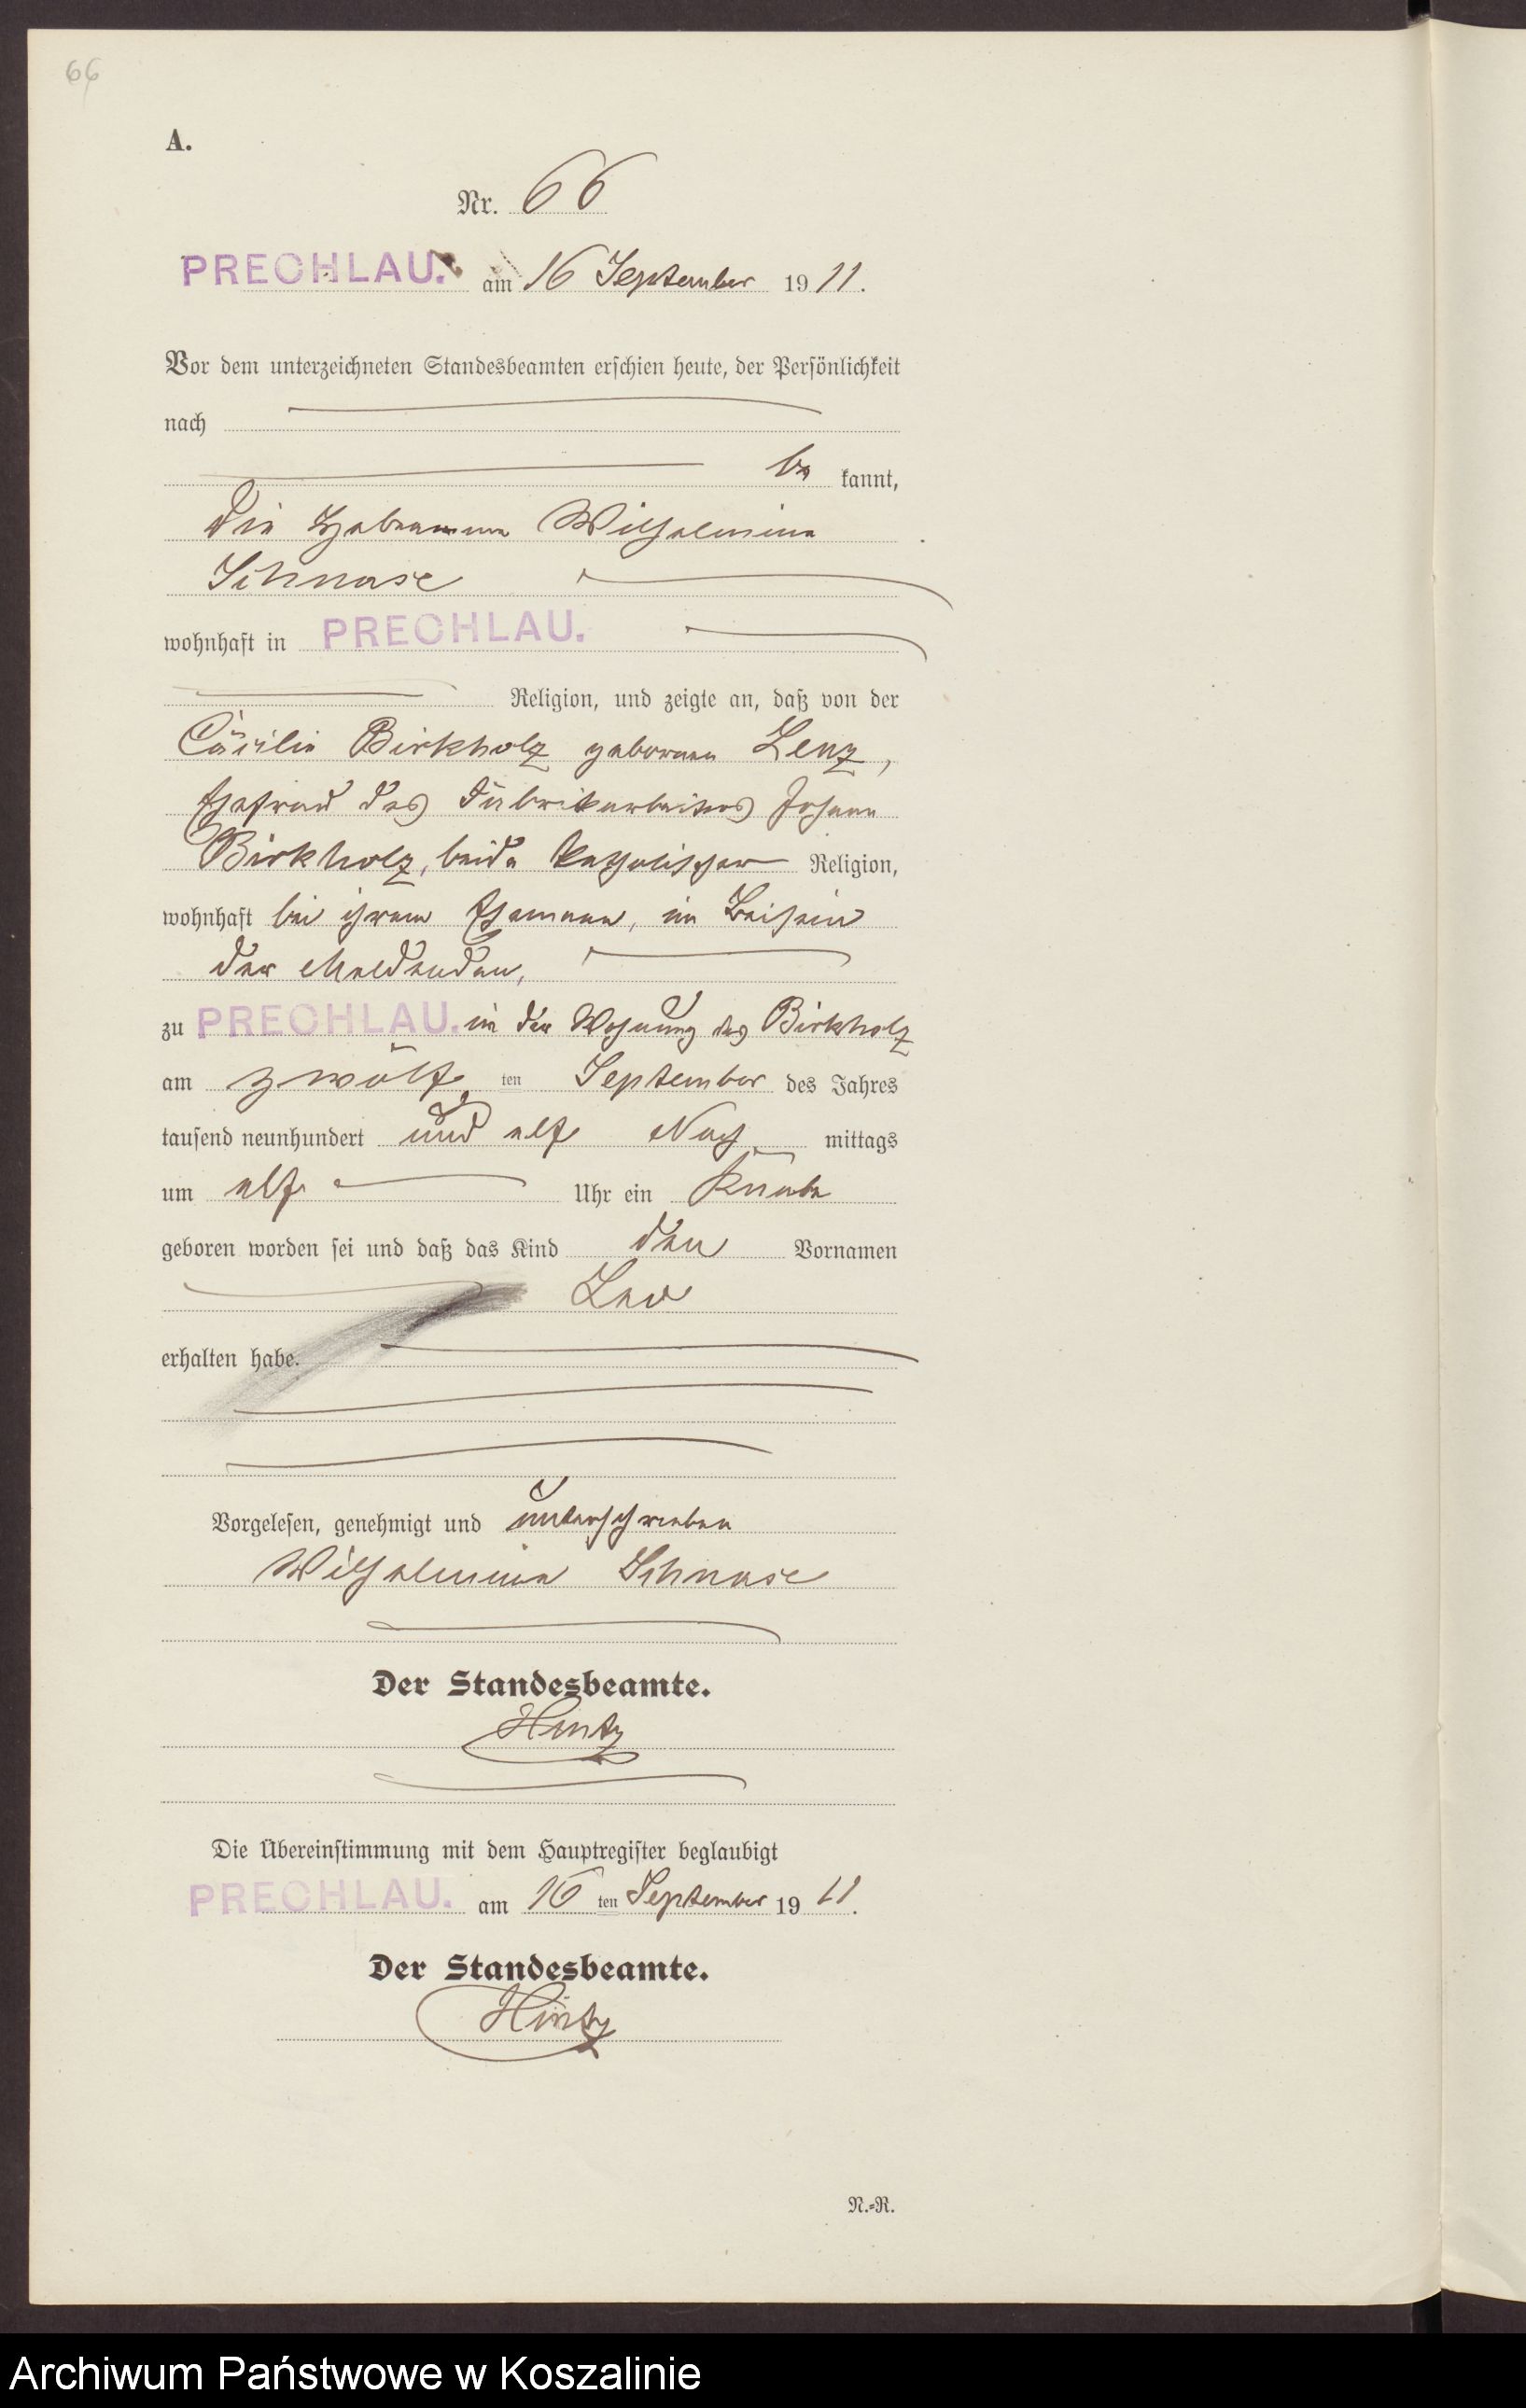 66
A.
Nr. 66
PRECHLAU. am 16 September 1911.
Vor dem unterzeichneten Standesbeamten erschien heute, der Persönlichkeit
nach
be kannt,
die Hebamme Wilhelmine
Schnase
wohnhaft in PRECHLAU.
Religion, und zeigte an, daß von der
Cäcilie Birkholz geborene Lenz,
Ehefrau des Fabrikarbeiters Johann
Birkholz, beide katholischer Religion,
wohnhaft bei ihrem Ehemann, im Beisein
der Meldenden,
zu PRECHLAU. in der Wohnung des Birkholz
am zwölf ten September des Jahres
tausend neunhundert und elf Nach mittags
um elf Uhr ein Knabe
geboren worden sei und daß das Kind den Vornamen
Leo
erhalten habe.
Vorgelesen, genehmigt und unterschrieben
Wilhelmine Schnase
Der Standesbeamte.
Hintz
Die Übereinstimmung mit dem Hauptregister beglaubigt
PRECHLAU. am 16 ten September 1911.
Der Standesbeamte.
Hintz
N.=R.
Archiwum Państwowe w Koszalinie